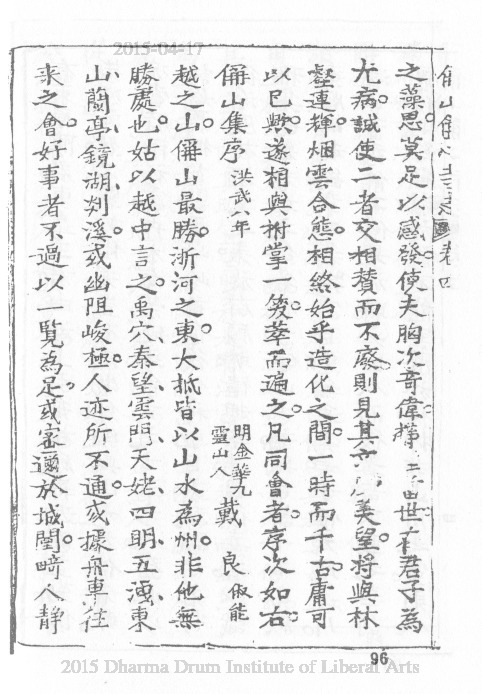 偁山偁心寺志 卷四
之藻思莫足以感發使夫胸次奇偉 世 君子為
尤病誠使二者交相賛而不廢則見其 美望將與林
壑連輝烟雲合態相絡始乎造化之間一時而千古庸可
以已歟遂相與拊掌一笑萃而遍之凡同會者序次如右
偁山集序 洪武八年 明金華九靈山人 戴良 俶能
越之山偁山最勝浙河之東大抵皆以山水為州非他無
勝處也姑以越中言之禹穴秦望雲門天姥四明五洩東
山蘭亭鏡湖剡溪或幽阻峻極人迹所不通或據舟車往
来之會好事者不過以一覧為足或密邇於城闉畸人靜
96
2015-04-17
2015 Dharma Drum Institute of Liberal Arts